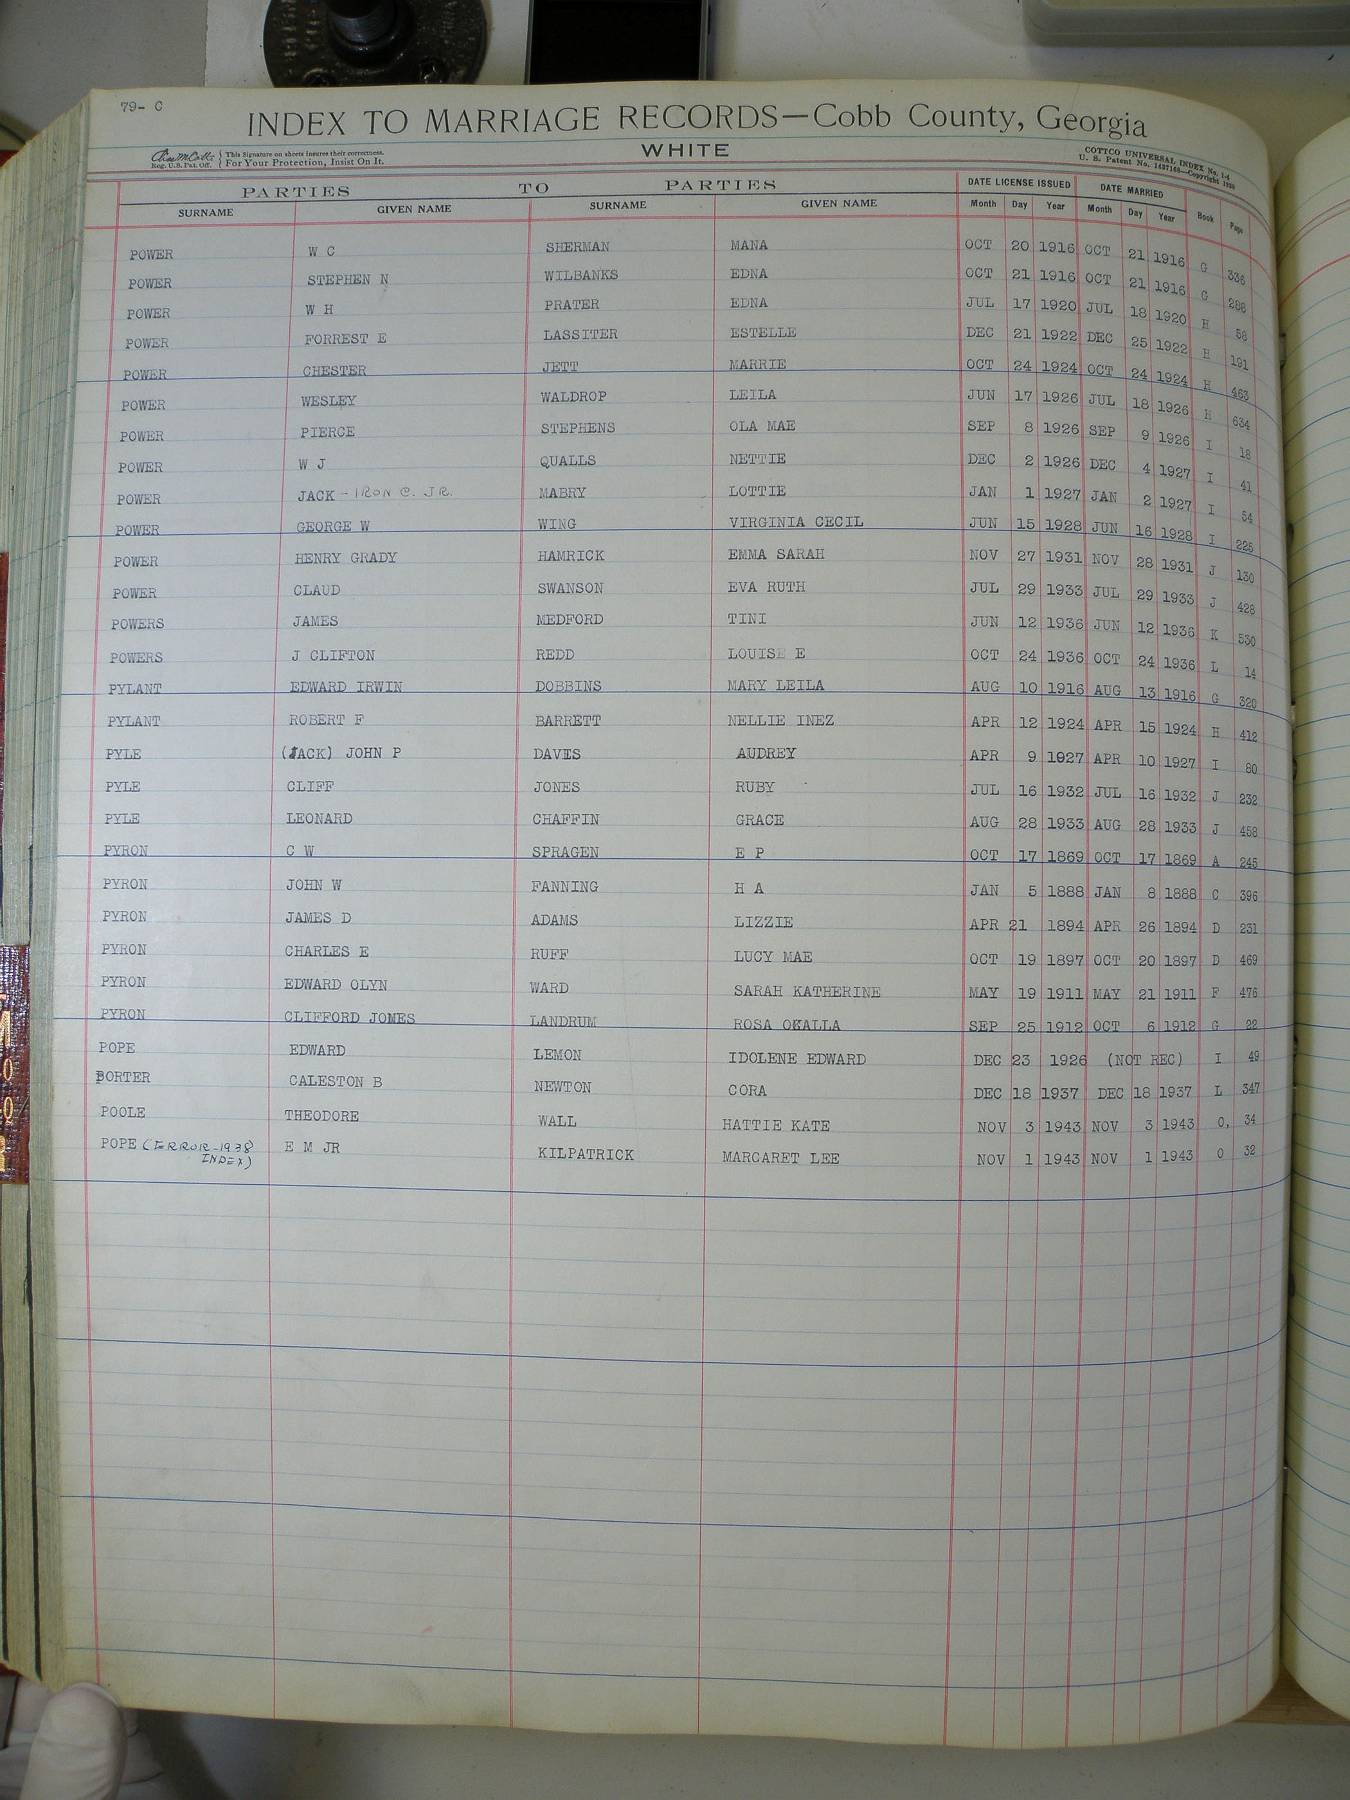 79- C
INDEX TO MARRIAGE RECORDS—Cobb County, Georgia
WHITE
This Signature on sheets insures their correctness.
Reg. U.S. Pat. Off. For Your Protection, Insist On It.
COTTCO UNIVERSAL INDEX No. 1-4
U. S. Patent No. 1437168—Copyright 1930
PARTIES TO PARTIES DATE LICENSE ISSUED DATE MARRIED
SURNAME GIVEN NAME SURNAME GIVEN NAME Month Day Year Month Day Year Book Page
POWER W C SHERMAN MANA OCT 20 1916 OCT 21 1916 G 336
POWER STEPHEN N WILBANKS EDNA OCT 21 1916 OCT 21 1916 G 288
POWER W H PRATER EDNA JUL 17 1920 JUL 18 1920 H 58
POWER FORREST E LASSITER ESTELLE DEC 21 1922 DEC 25 1922 H 191
POWER CHESTER JETT MARRIE OCT 24 1924 OCT 24 1924 H 463
POWER WESLEY WALDROP LEILA JUN 17 1926 JUL 18 1926 H 634
POWER PIERCE STEPHENS OLA MAE SEP 8 1926 SEP 9 1926 I 18
POWER W J QUALLS NETTIE DEC 2 1926 DEC 4 1927 I 41
POWER JACK - IRON C. JR. MABRY LOTTIE JAN 1 1927 JAN 2 1927 I 54
POWER GEORGE W WING VIRGINIA CECIL JUN 15 1928 JUN 16 1928 I 225
POWER HENRY GRADY HAMRICK EMMA SARAH NOV 27 1931 NOV 28 1931 J 130
POWER CLAUD SWANSON EVA RUTH JUL 29 1933 JUL 29 1933 J 428
POWERS JAMES MEDFORD TINI JUN 12 1936 JUN 12 1936 K 530
POWERS J CLIFTON REDD LOUISE E OCT 24 1936 OCT 24 1936 L 14
PYLANT EDWARD IRWIN DOBBINS MARY LEILA AUG 10 1916 AUG 13 1916 G 320
PYLANT ROBERT F BARRETT NELLIE INEZ APR 12 1924 APR 15 1924 H 412
PYLE (JACK) JOHN P DAVIS AUDREY APR 9 1927 APR 10 1927 I 80
PYLE CLIFF JONES RUBY JUL 16 1932 JUL 16 1932 J 232
PYLE LEONARD CHAFFIN GRACE AUG 28 1933 AUG 28 1933 J 458
PYRON C W SPRAGEN E P OCT 17 1869 OCT 17 1869 A 245
PYRON JOHN W FANNING H A JAN 5 1888 JAN 8 1888 C 396
PYRON JAMES D ADAMS LIZZIE APR 21 1894 APR 26 1894 D 231
PYRON CHARLES E RUFF LUCY MAE OCT 19 1897 OCT 20 1897 D 469
PYRON EDWARD OLYN WARD SARAH KATHERINE MAY 19 1911 MAY 21 1911 F 476
PYRON CLIFFORD JONES LANDRUM ROSA OKALLA SEP 25 1912 OCT 6 1912 G 22
POPE EDWARD LEMON IDOLENE EDWARD DEC 23 1926 (NOT REC) I 49
PORTER CALESTON B NEWTON CORA DEC 18 1937 DEC 18 1937 L 347
POOLE THEODORE WALL HATTIE KATE NOV 3 1943 NOV 3 1943 O, 34
POPE (ERROR-1938 INDEX) E M JR KILPATRICK MARGARET LEE NOV 1 1943 NOV 1 1943 O 32